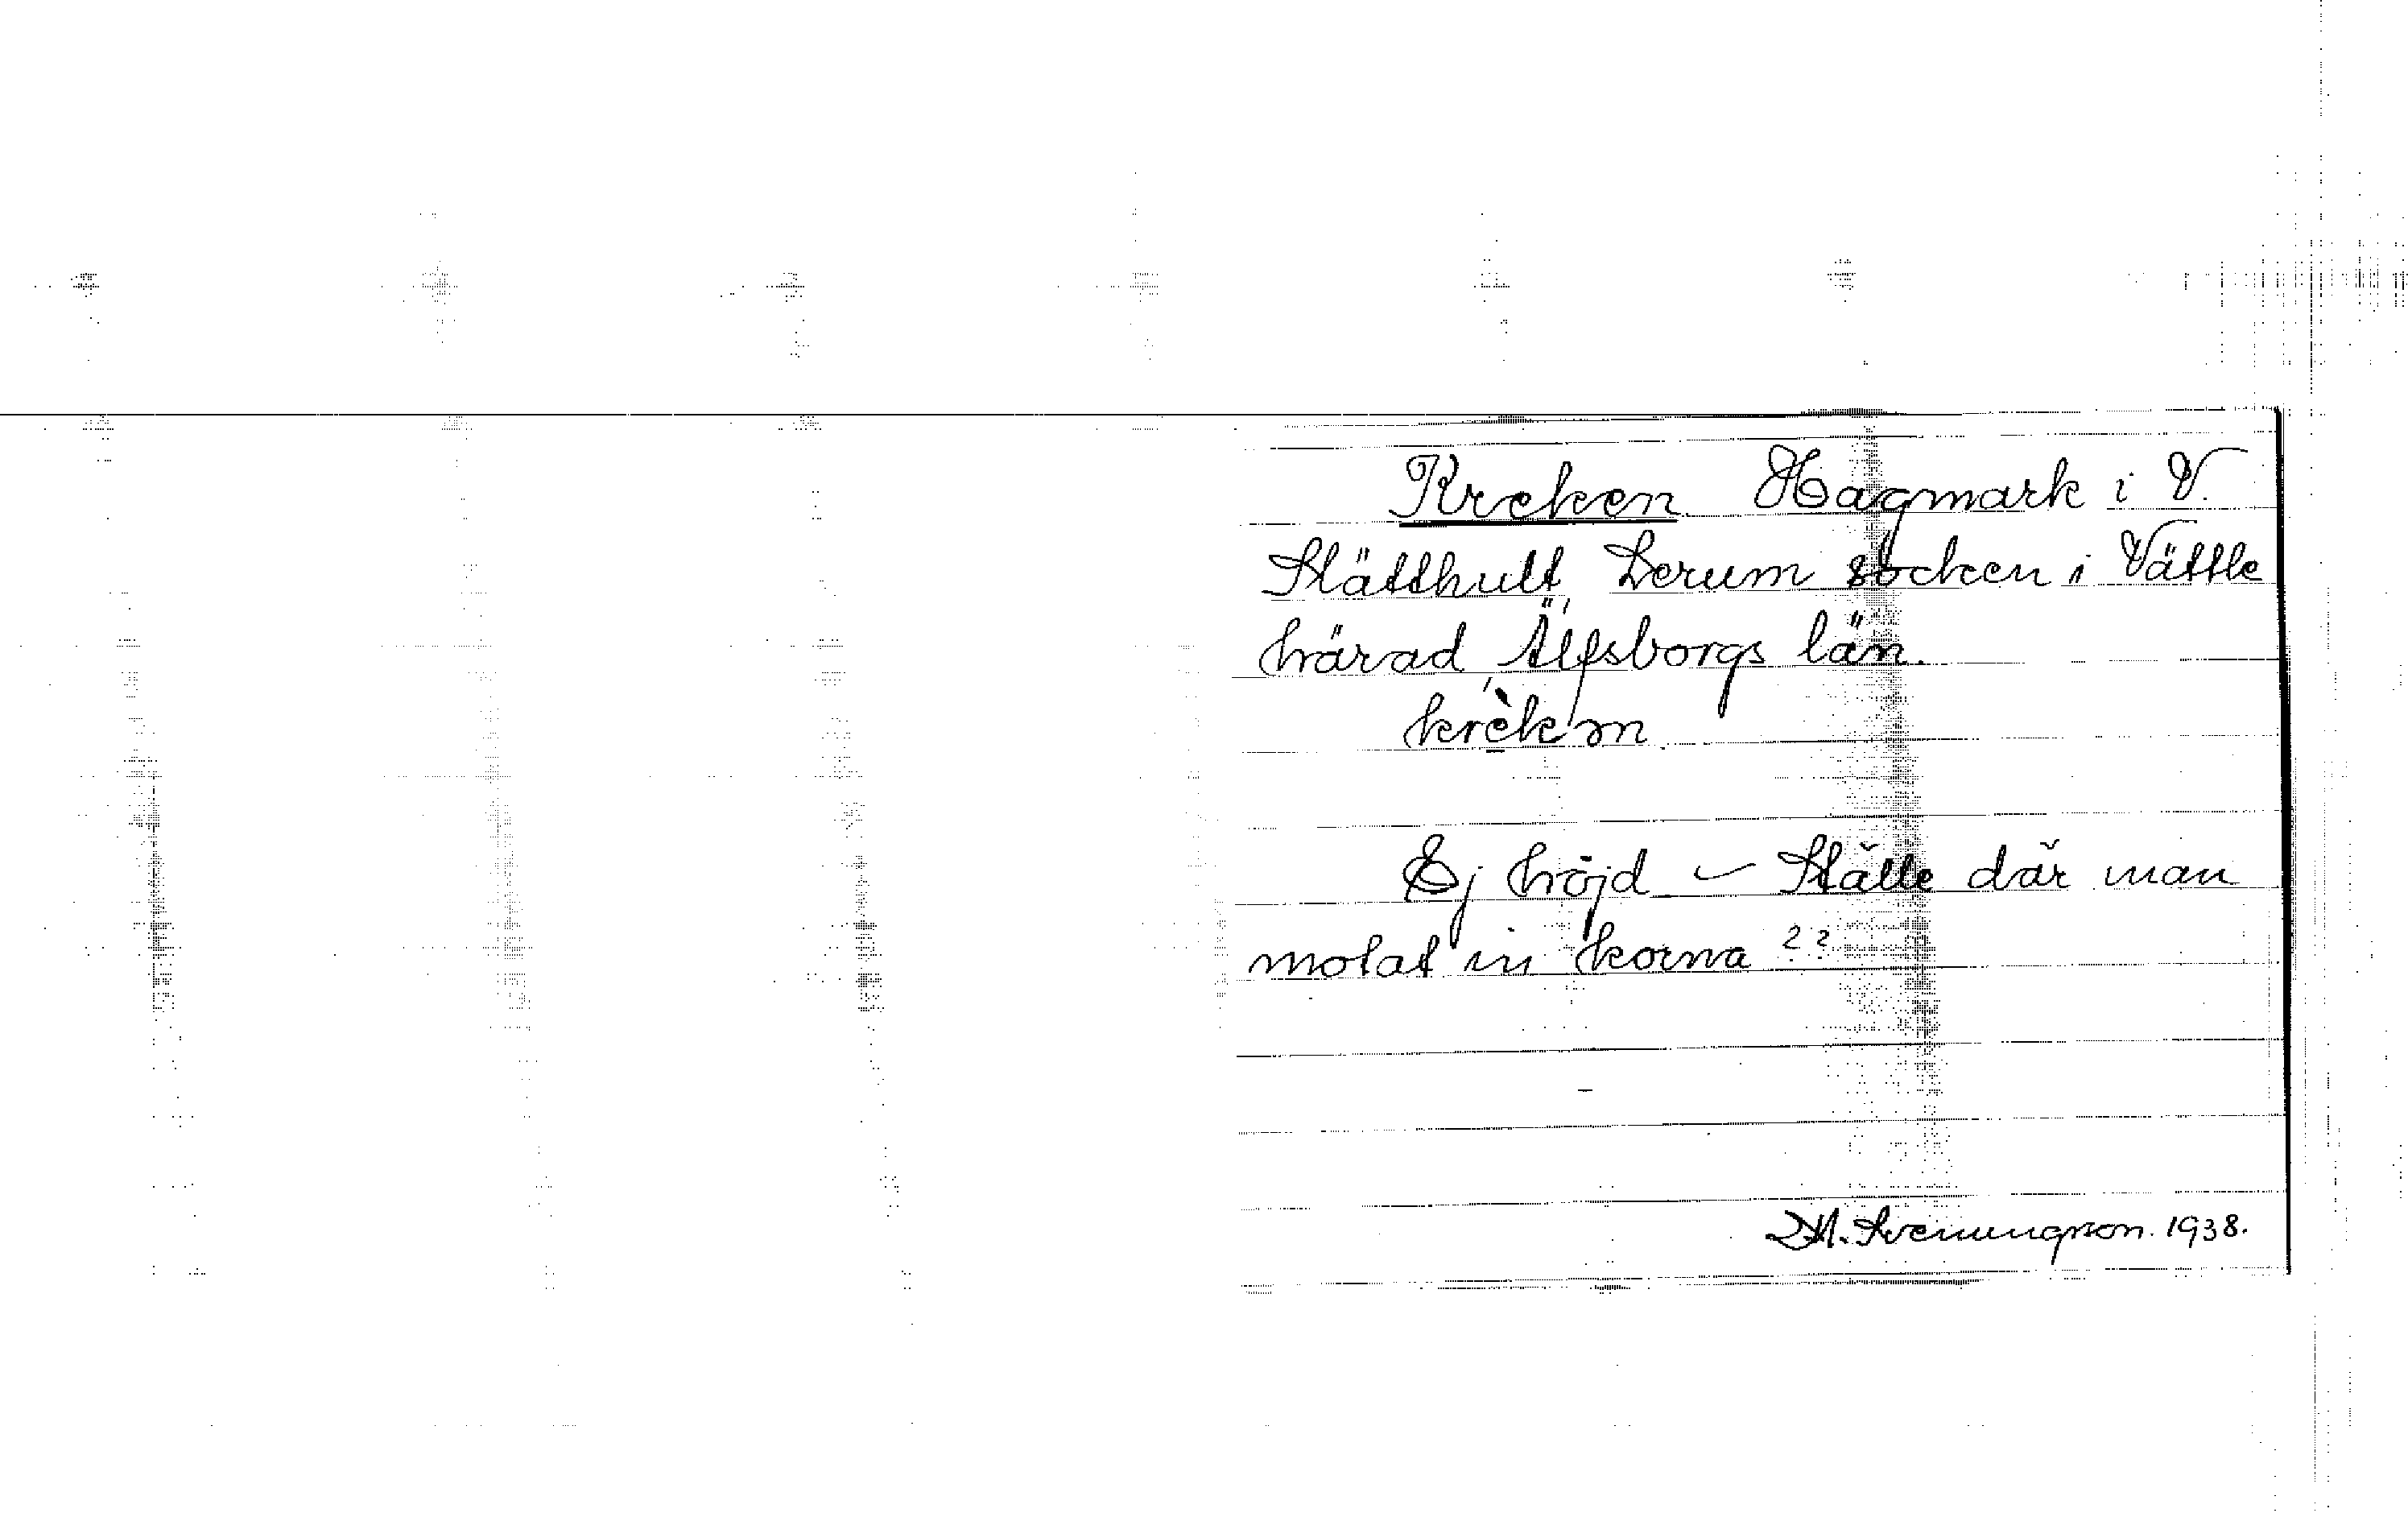 Kreken Hagmark i V.
Slätthult, Lerum socken i Vättle
härad, Älfsborgs län.
krèkm
Ej höjd – Ställe där man
motat in korna ??
M. Svenungson. 1938.